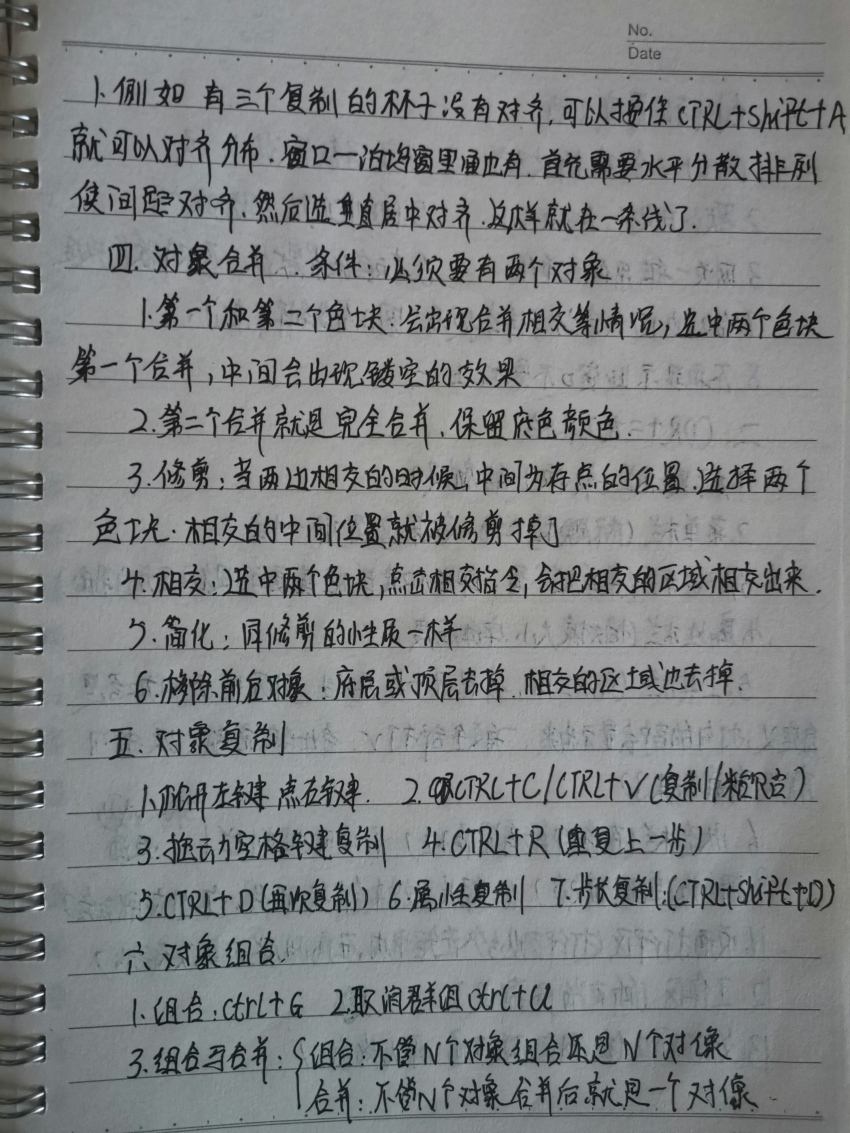 No.
Date
1.例如 有三个复制的杯子没有对齐,可以按住CTRL+Shift+A
就可以对齐分布.窗口一泊坞窗里面也有.首先需要水平分散排列
使间距对齐.然后选垂直居中对齐.这样就在一条线了.
四.对象合并.条件:必须要有两个对象
1.第一个和第二个色块:会出现合并,相交等情况,选中两个色块
第一个合并,中间会出现镂空的效果
2.第二个合并就是完全合并.保留底色颜色.
3.修剪:当两边相交的时候,中间为存点的位置.选择两个
色块.相交的中间位置就被修剪掉了
4.相交:选中两个色块,点击相交指令,会把相交的区域相交出来.
5.简化:同修剪的性质一样
6.移除前后对象:底层或顶层去掉.相交的区域也去掉.
五.对象复制
1.松开左键点右键. 2.CTRL+C/CTRL+V(复制/粘贴)
3.拖动空格键复制 4.CTRL+R(重复上一步)
5.CTRL+D(再次复制) 6.属性复制 7.步长复制:(CTRL+Shift+D)
六.对象组合.
1.组合:ctrl+G 2.取消群组ctrl+U
3.组合与合并:{组合:不管N个对象组合还是N个对像
合并:不管N个对象合并后就是一个对像.